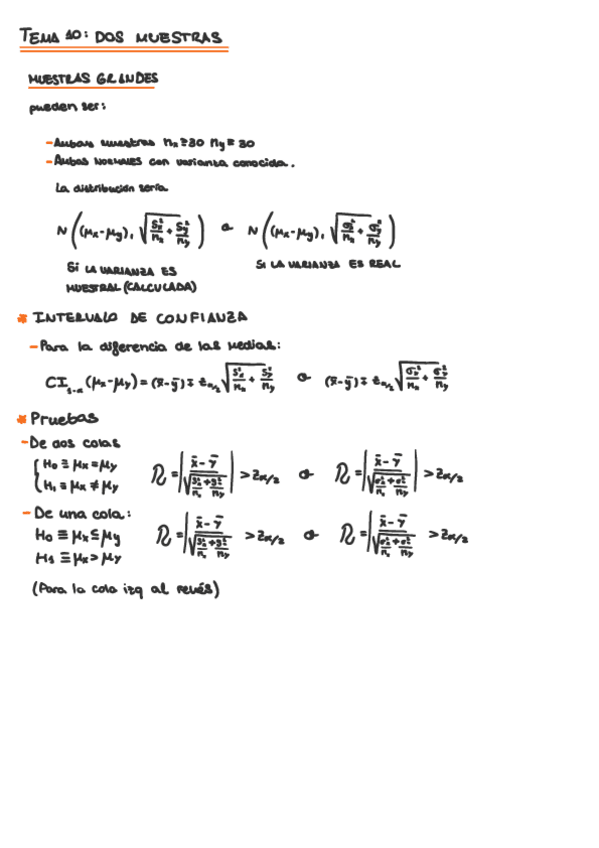 TEMA 10: DOS MUESTRAS
MUESTRAS GRANDES
pueden ser:
- Ambas muestras nx ≥ 30 ny ≥ 30
- Ambas NORMALES con varianza conocida.
La distribución sería
N((μx-μy), √(Sx²/nx + Sy²/ny)) o N((μx-μy), √(σx²/nx + σy²/ny))
SI LA VARIANZA ES MUESTRAL (CALCULADA)
SI LA VARIANZA ES REAL
* INTERVALO DE CONFIANZA
- Para la diferencia de las medias:
CI₁₋α (μx-μy) = (x̄-ȳ) ∓ zα/2 √(Sx²/nx + Sy²/ny) o (x̄-ȳ) ∓ zα/2 √(σx²/nx + σy²/ny)
* Pruebas
- De dos colas
{ H0 ≡ μx = μy
H1 ≡ μx ≠ μy
R = | (x̄ - ȳ) / √(Sx²/nx + Sy²/ny) | > Zα/2 o R = | (x̄ - ȳ) / √(σx²/nx + σy²/ny) | > Zα/2
- De una cola:
H0 ≡ μx ≤ μy
H1 ≡ μx > μy
R = | (x̄ - ȳ) / √(Sx²/nx + Sy²/ny) > Zα/2 o R = | (x̄ - ȳ) / √(σx²/nx + σy²/ny) > Zα/2
(Para la cola izq al revés)